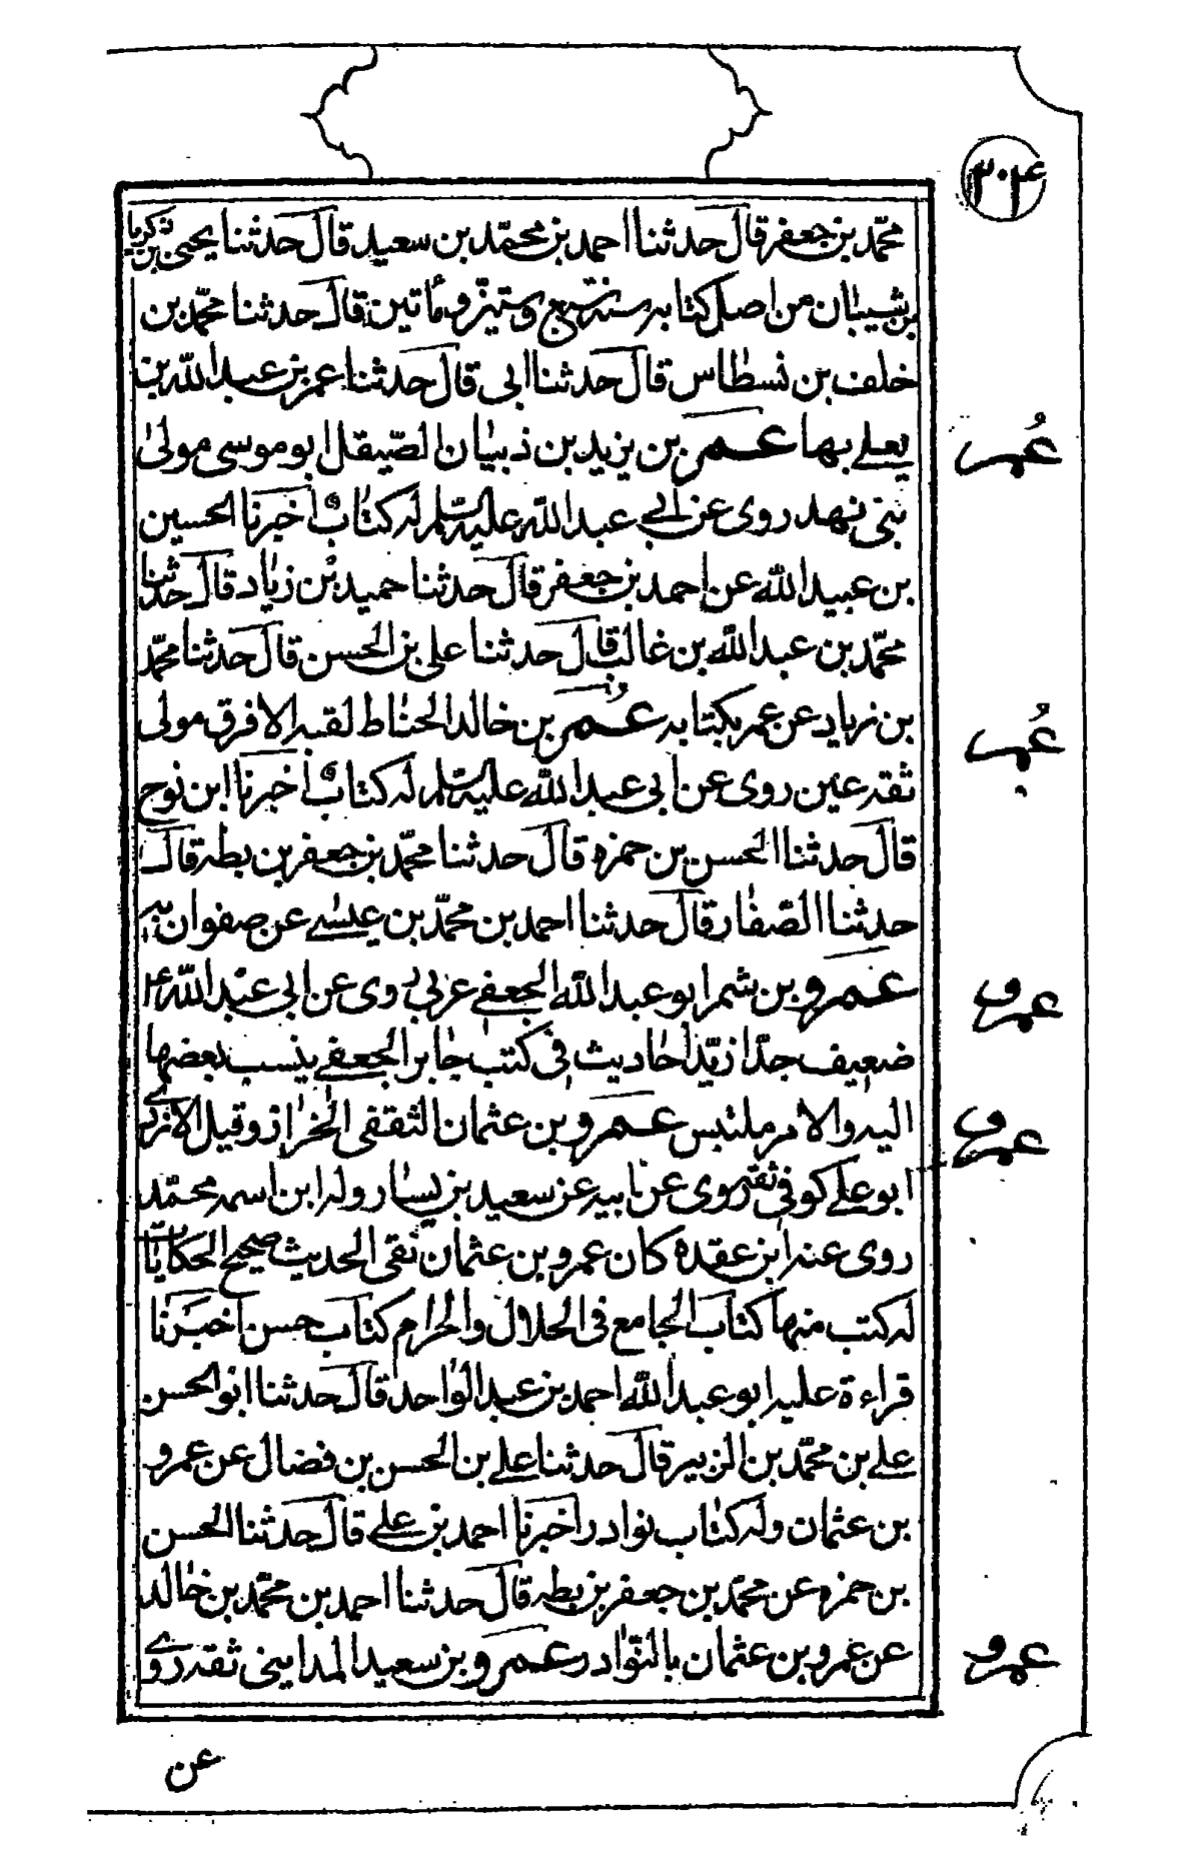 ٣٠٤
محمّد بن جعفر قال حدثنا احمد بن محمّد بن سعيد قال حدثنا يحيى بن زكريا
بن شيبان من اصل كتابه سنة سبع وستين ومأتين قال حدثنا محمّد بن
خلف بن نسطاس قال حدثنا ابى قال حدثنا عمر بن عبد الله بن
يعلى بها عمر بن يزيد بن ذبيان الصّيقل ابو موسى مولى
عُمر
بنى نهد روى عن ابى عبد الله عليه السّلم له كتاب اخبرنا الحسين
بن عبيد الله عن احمد بن جعفر قال حدثنا حميد بن زياد قال حدثنا
محمّد بن عبد الله بن غالب قال حدثنا على بن الحسن قال حدثنا محمّد
بن زياد عن عمر بكتابه عُمر بن خالد الحناط لقبه الافرق مولى
عُمر
ثقة عين روى عن ابى عبد الله عليه السّلم له كتاب اخبرنا ابن نوح
قال حدثنا الحسن بن حمزه قال حدثنا محمّد بن جعفر بن بطه قال
حدثنا الصّفار قال حدثنا احمد بن محمّد بن عيسى عن صفوان به
عمرو بن شمر ابو عبد الله الجعفى عربى روى عن ابى عبد الله ع
عمرو
ضعيف جدّا زيد احاديث فى كتب جابر الجعفى ينسب بعضها
اليه والامر ملتبس عمرو بن عثمان الثقفى الخزاز وقيل الازدى
عمرو
ابو على كوفى ثقة روى عن ابيه عن سعيد بن يسار وله ابن اسمه محمّد
روى عنه ابن عقده كان عمرو بن عثمان نقى الحديث صحيح الحكايات
له كتب منها كتاب الجامع فى الحلال والحرام كتاب حسن اخبرنا
قراءة عليه ابو عبد الله احمد بن عبد الواحد قال حدثنا ابو الحسن
على بن محمّد بن الزبير قال حدثنا على بن الحسن بن فضال عن عمرو
بن عثمان وله كتاب نوادر اخبرنا احمد بن على قال حدثنا الحسن
بن حمزه عن محمّد بن جعفر بن بطه قال حدثنا احمد بن محمّد بن خالد
عن عمرو بن عثمان بالنّوادر عمرو بن سعيد المداينى ثقة روى
عمرو
عن